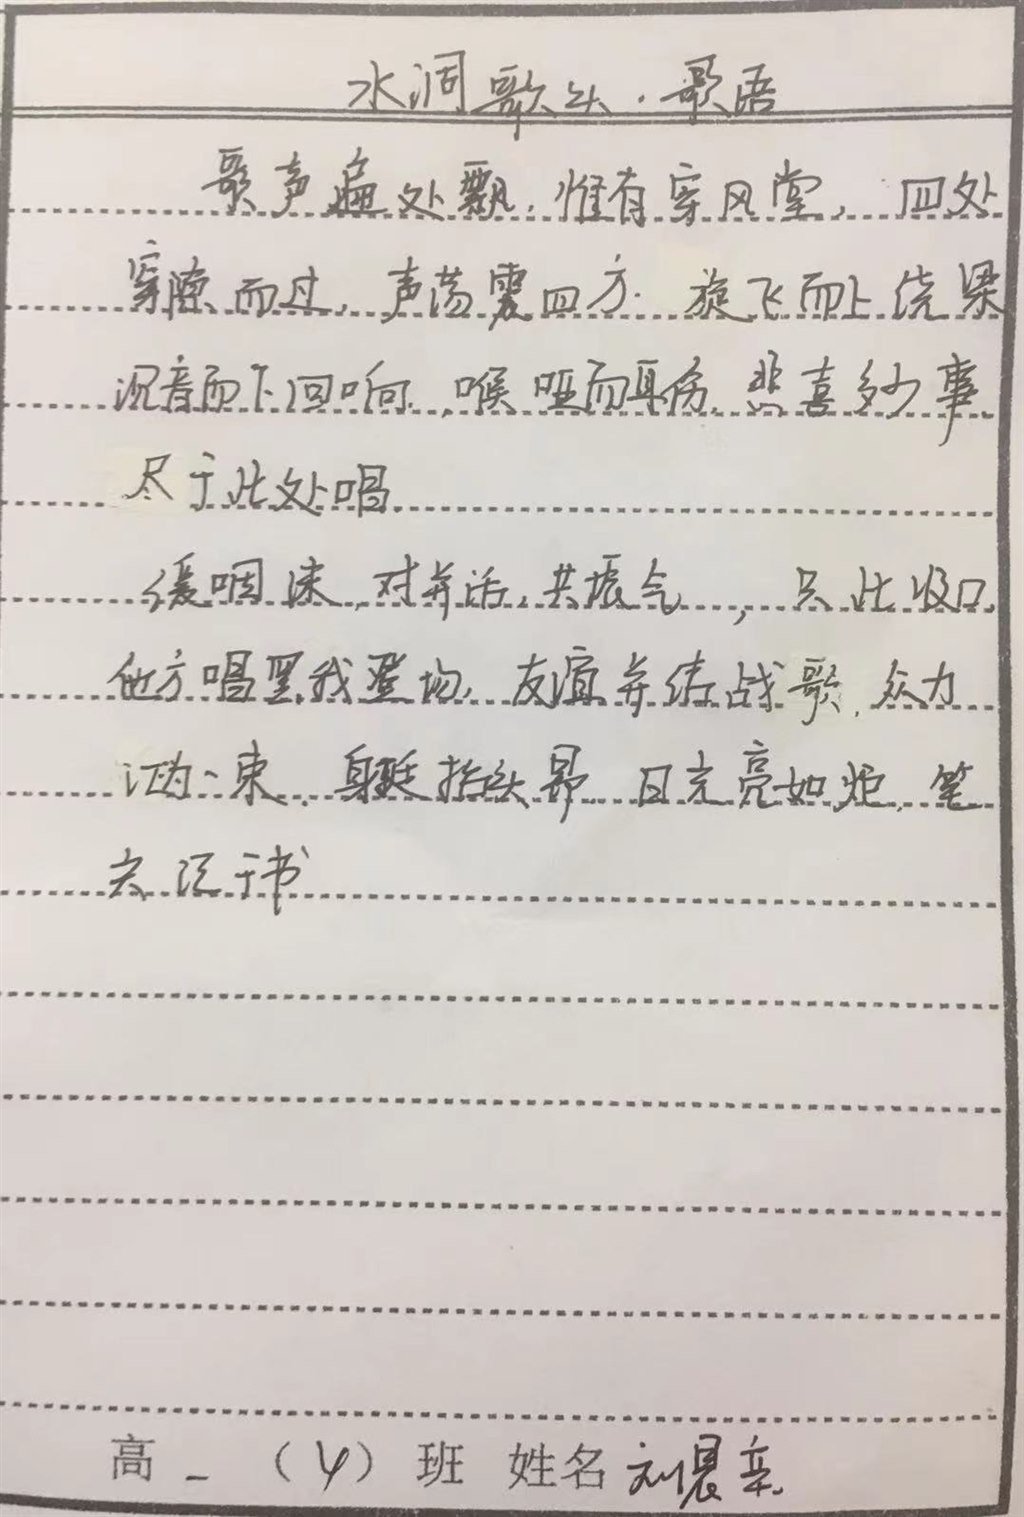 水洞歌头·歌语
歌声遍处飘，惟有穿风堂，四处
穿隙而过，声荡震四方。旋飞而上绕梁
沉音而下回响，喉哑而耳伤，悲喜多少事，
尽于此处唱。
缓咽沫，对弃活，共振气，只此收口，
他方唱罢我登场，友谊并结战歌，众力
汇为一束，身廷抬头昂，目光亮如炬，笔
六江于书
高一（4）班 姓名 刘晨